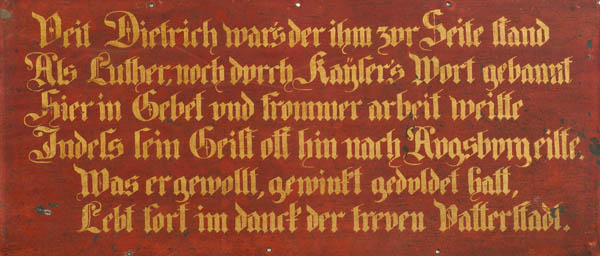 Veit Dietrich war's der ihm zvr Seite stand
Als Luther, noch dvrch Kaÿser's Wort gebannt
Hier in Gebet vnd frommer arbeit weilte
Indess sein Geist oft hin nach Avgsbvrg eilte.
Was er gewollt, gewirkt gedvldet hatt,
Lebt fort im danck der treven Vatterstadt.